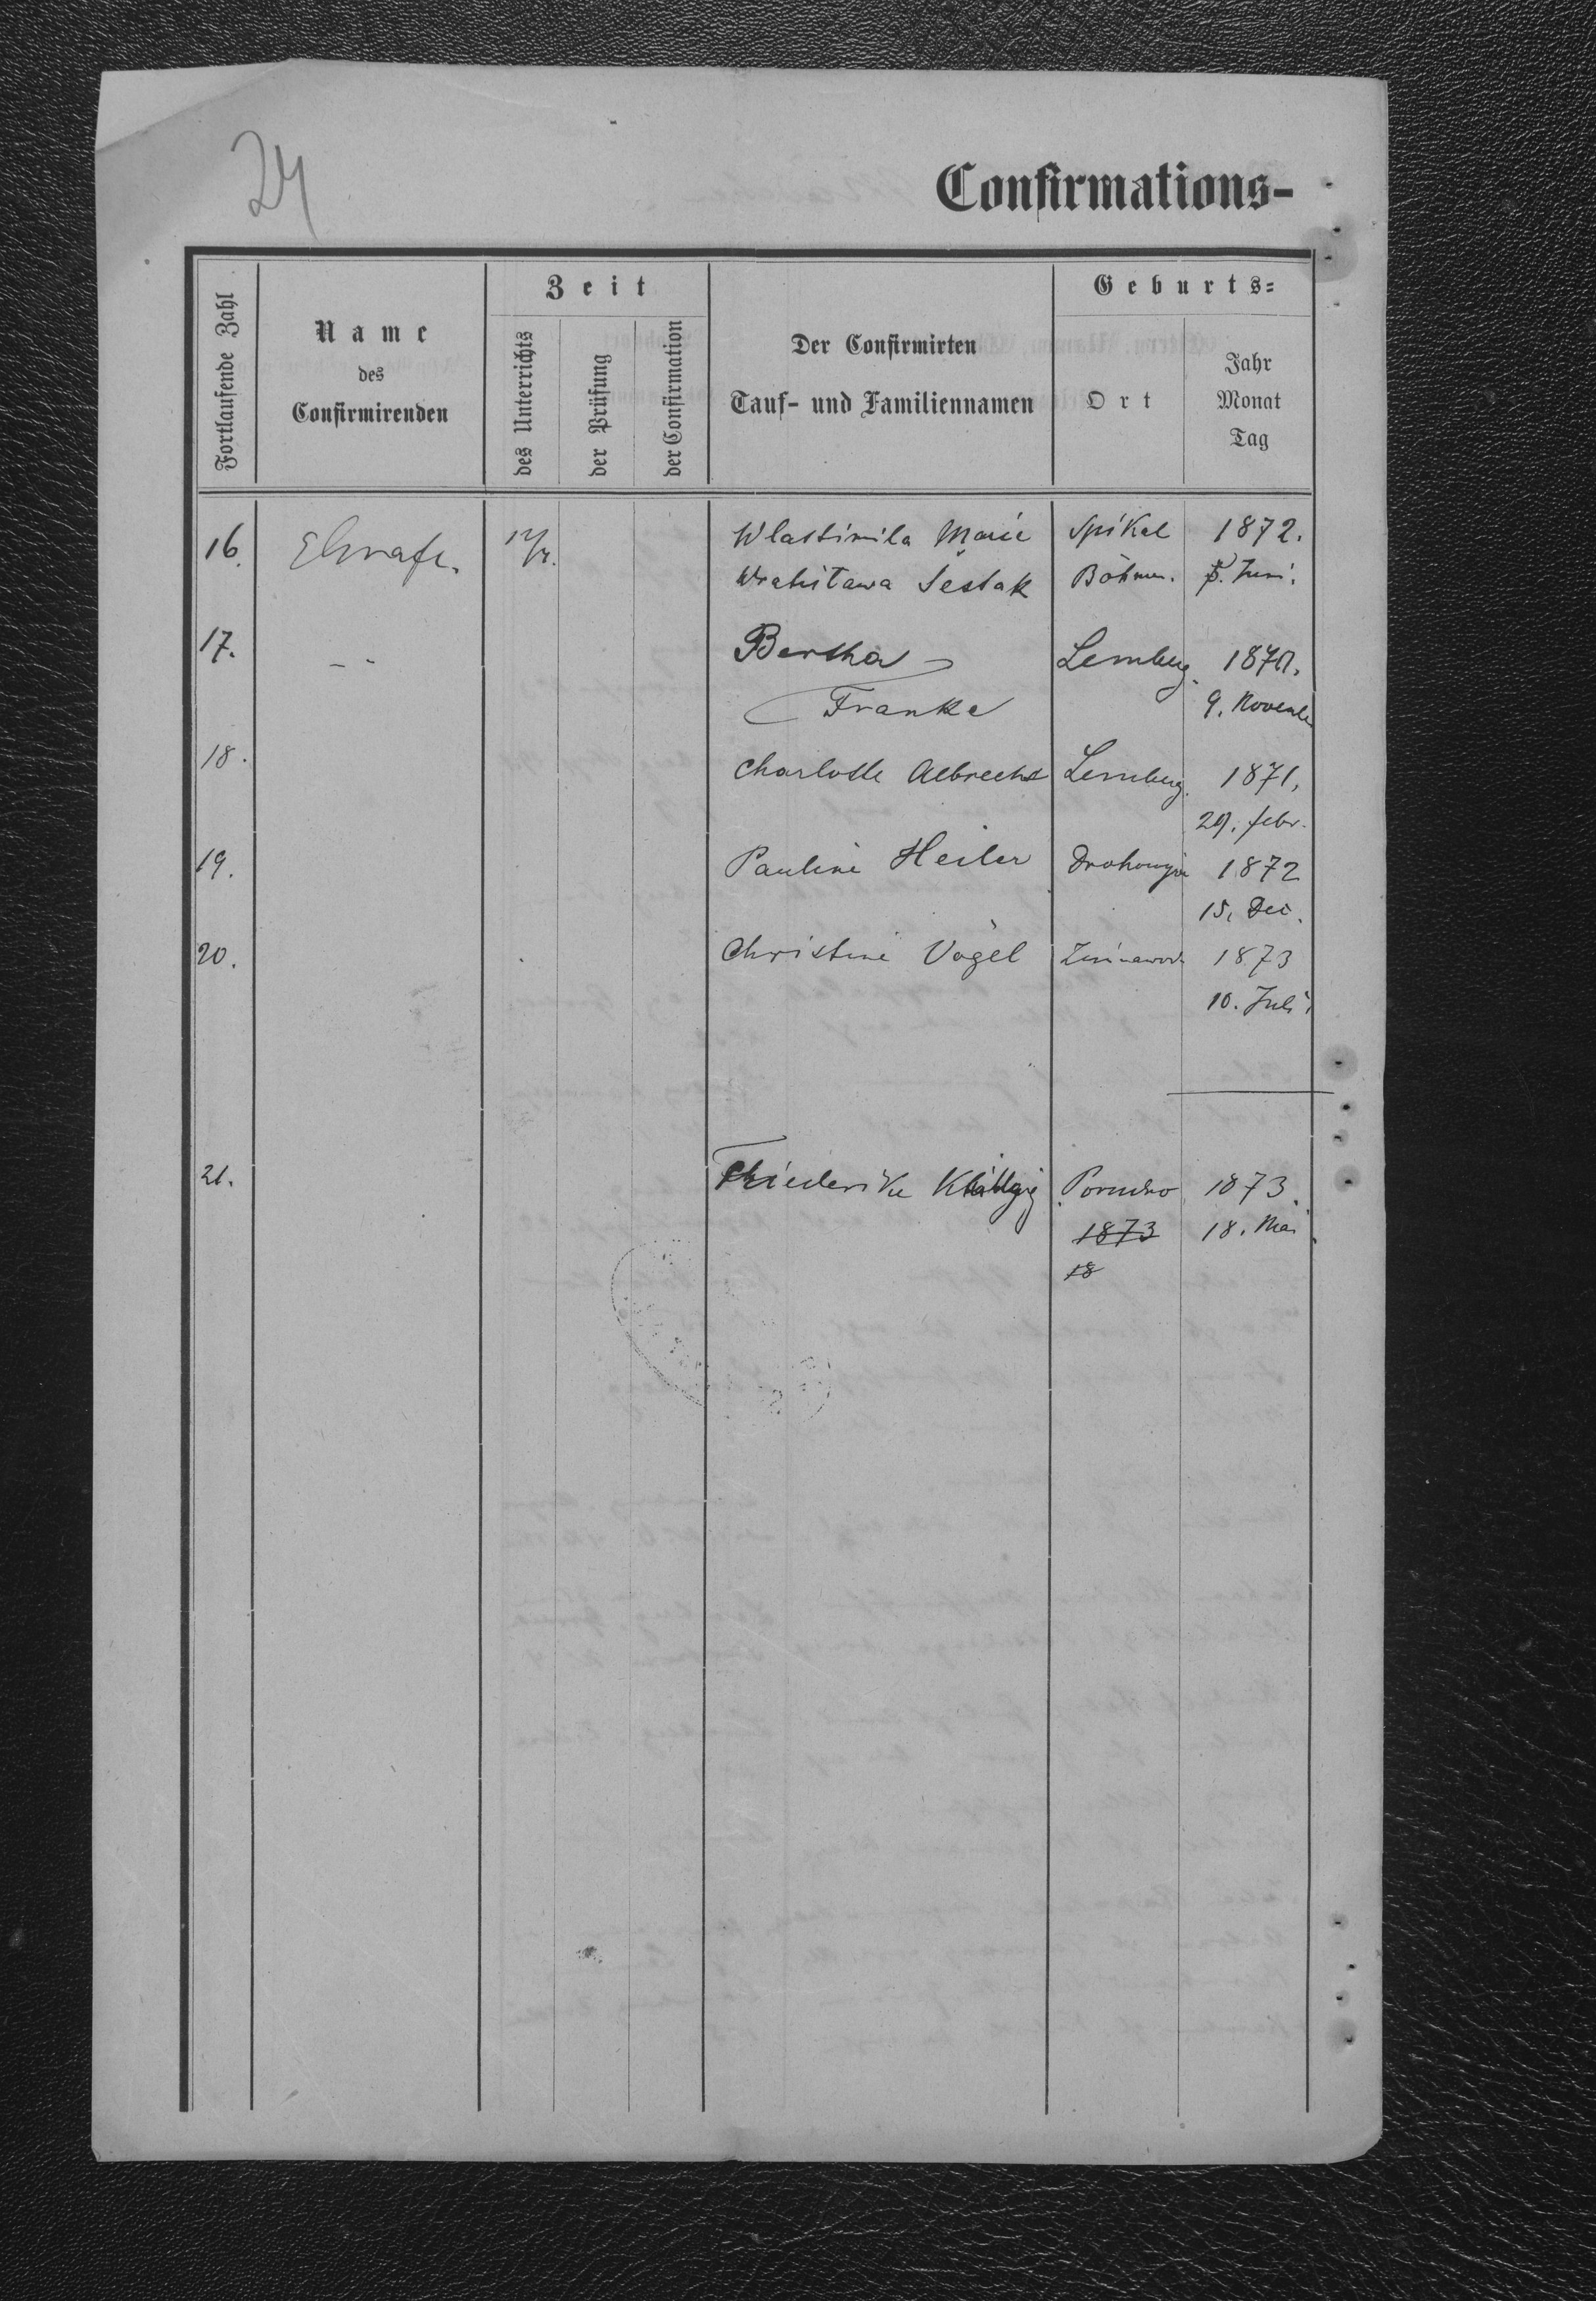 24
Confirmations-
Fortlaufende Zahl
Name
des
Confirmirenden
Zeit
des Unterrichts
der Prüfung
der Confirmation
Der Confirmirten
Tauf- und Familiennamen
Geburts-
Ort
Jahr
Monat
Tag
16. Wlastimila Marie Spikal 1872.
Sestak Böhmen. Juni.
17. Bertha Lemberg.
Franke 9. Novemb
18. Charlotte Albrecht Lemberg. 1871,
29. febr.
19. Pauline Heiler 1872
15. Dec.
20. Christine Vogel 1873
10. Juli
21. Friederike 1873
1873 18. Mai
18